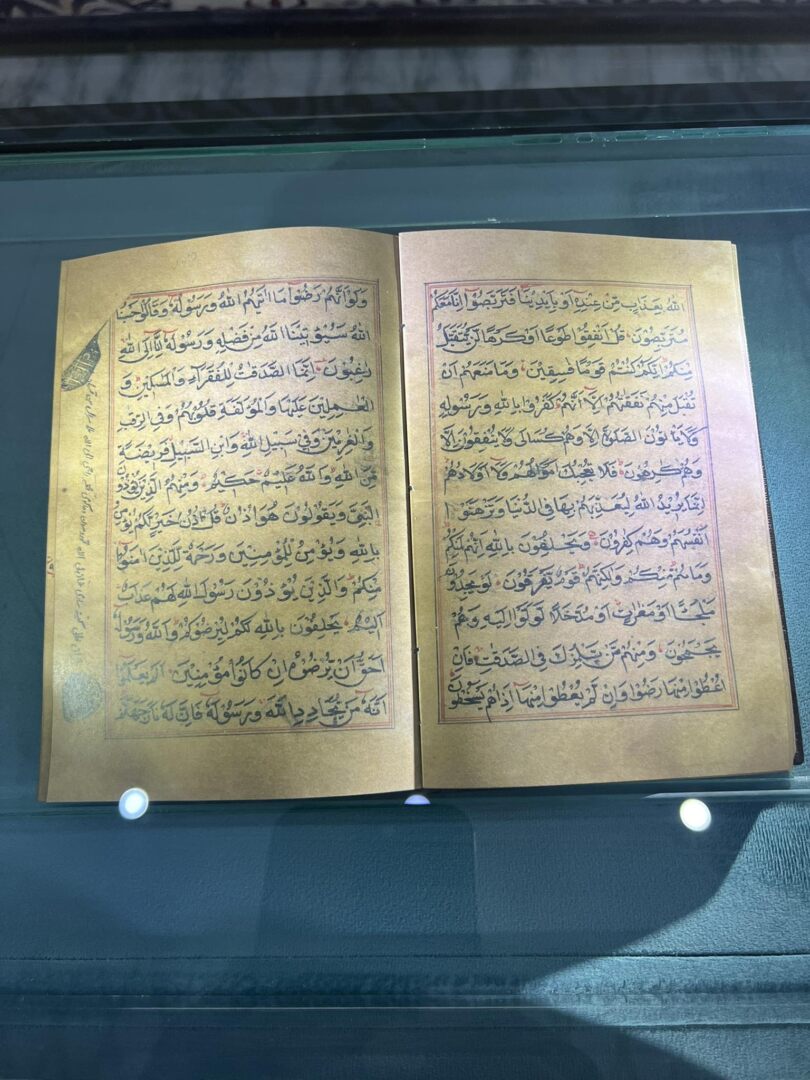 اللهِ بِعَذَابٍ مِّنْ عِنْدِهِ اَوْ بِاَيْدِيْنَا فَتَرَبَّصُوْا اِنَّا مَعَكُمْ
مُتَرَبِّصُوْنَ قُلْ اَنْفِقُوْا طَوْعًا اَوْ كَرْهًا لَنْ يُتَقَبَّلَ
مِنْكُمْ اِنَّكُمْ كُنْتُمْ قَوْمًا فٰسِقِيْنَ وَمَا مَنَعَهُمْ اَنْ
تُقْبَلَ مِنْهُمْ نَفَقٰتُهُمْ اِلَّا اَنَّهُمْ كَفَرُوْا بِاللهِ وَرَسُوْلِهِ
وَلَا يَاْتُوْنَ الصَّلٰوةَ اِلَّا وَهُمْ كُسَالٰى وَلَا يُنْفِقُوْنَ اِلَّا
وَهُمْ كٰرِهُوْنَ فَلَا تُعْجِبْكَ اَمْوَالُهُمْ وَلَا اَوْلَادُهُمْ
اِنَّمَا يُرِيْدُ اللهُ لِيُعَذِّبَهُمْ بِهَا فِي الدُّنْيَا وَتَزْهَقَ
اَنْفُسُهُمْ وَهُمْ كٰفِرُوْنَ وَيَحْلِفُوْنَ بِاللهِ اِنَّهُمْ لَمِنْكُمْ
وَمَا هُمْ مِنْكُمْ وَلٰكِنَّهُمْ قَوْمٌ يَفْرَقُوْنَ لَوْ يَجِدُوْنَ
مَلْجَأً اَوْ مَغٰرٰتٍ اَوْ مُدَّخَلًا لَوَلَّوْا اِلَيْهِ وَهُمْ
يَجْمَحُوْنَ وَمِنْهُمْ مَّنْ يَلْمِزُكَ فِي الصَّدَقٰتِ فَاِنْ
اُعْطُوْا مِنْهَا رَضُوْا وَاِنْ لَمْ يُعْطَوْا مِنْهَا اِذَا هُمْ يَسْخَطُوْنَ
وَلَوْ اَنَّهُمْ رَضُوْا مَا اٰتٰىهُمُ اللهُ وَرَسُوْلُهُ وَقَالُوْا حَسْبُنَا
اللهُ سَيُؤْتِيْنَا اللهُ مِنْ فَضْلِهِ وَرَسُوْلُهُ اِنَّا اِلَى اللهِ
رٰغِبُوْنَ اِنَّمَا الصَّدَقٰتُ لِلْفُقَرَآءِ وَالْمَسٰكِيْنِ وَ
الْعٰمِلِيْنَ عَلَيْهَا وَالْمُؤَلَّفَةِ قُلُوْبُهُمْ وَفِي الرِّقَابِ
وَالْغٰرِمِيْنَ وَفِيْ سَبِيْلِ اللهِ وَابْنِ السَّبِيْلِ فَرِيْضَةً
مِّنَ اللهِ وَاللهُ عَلِيْمٌ حَكِيْمٌ وَمِنْهُمُ الَّذِيْنَ يُؤْذُوْنَ
النَّبِيَّ وَيَقُوْلُوْنَ هُوَ اُذُنٌ قُلْ اُذُنُ خَيْرٍ لَكُمْ يُؤْمِنُ
بِاللهِ وَيُؤْمِنُ لِلْمُؤْمِنِيْنَ وَرَحْمَةٌ لِلَّذِيْنَ اٰمَنُوْا
مِنْكُمْ وَالَّذِيْنَ يُؤْذُوْنَ رَسُوْلَ اللهِ لَهُمْ عَذَابٌ
اَلِيْمٌ يَحْلِفُوْنَ بِاللهِ لَكُمْ لِيُرْضُوْكُمْ وَاللهُ وَرَسُوْلُهُ
اَحَقُّ اَنْ يُرْضُوْهُ اِنْ كَانُوْا مُؤْمِنِيْنَ اَلَمْ يَعْلَمُوْا
اَنَّهُ مَنْ يُحَادِدِ اللهَ وَرَسُوْلَهُ فَاَنَّ لَهُ نَارَ جَهَنَّمَ